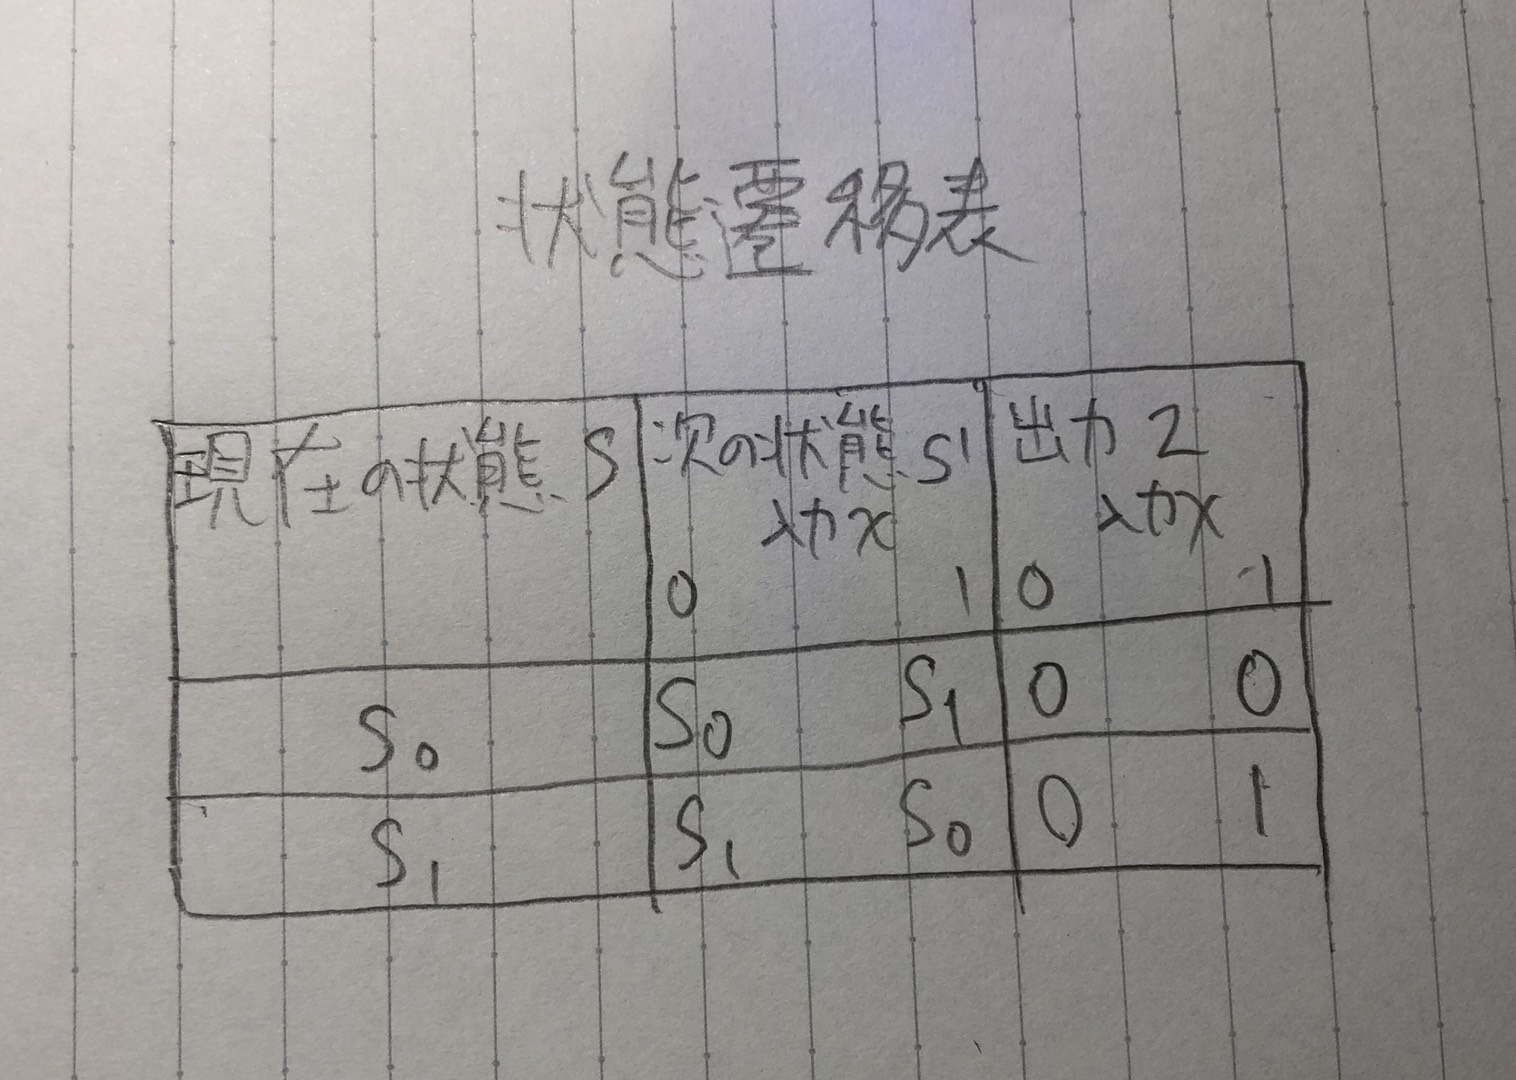 状態遷移表
現在の状態 S 次の状態 S' 出力 Z
入力x 入力x
0 1 0 1
S₀ S₀ S₁ 0 0
S₁ S₁ S₀ 0 1